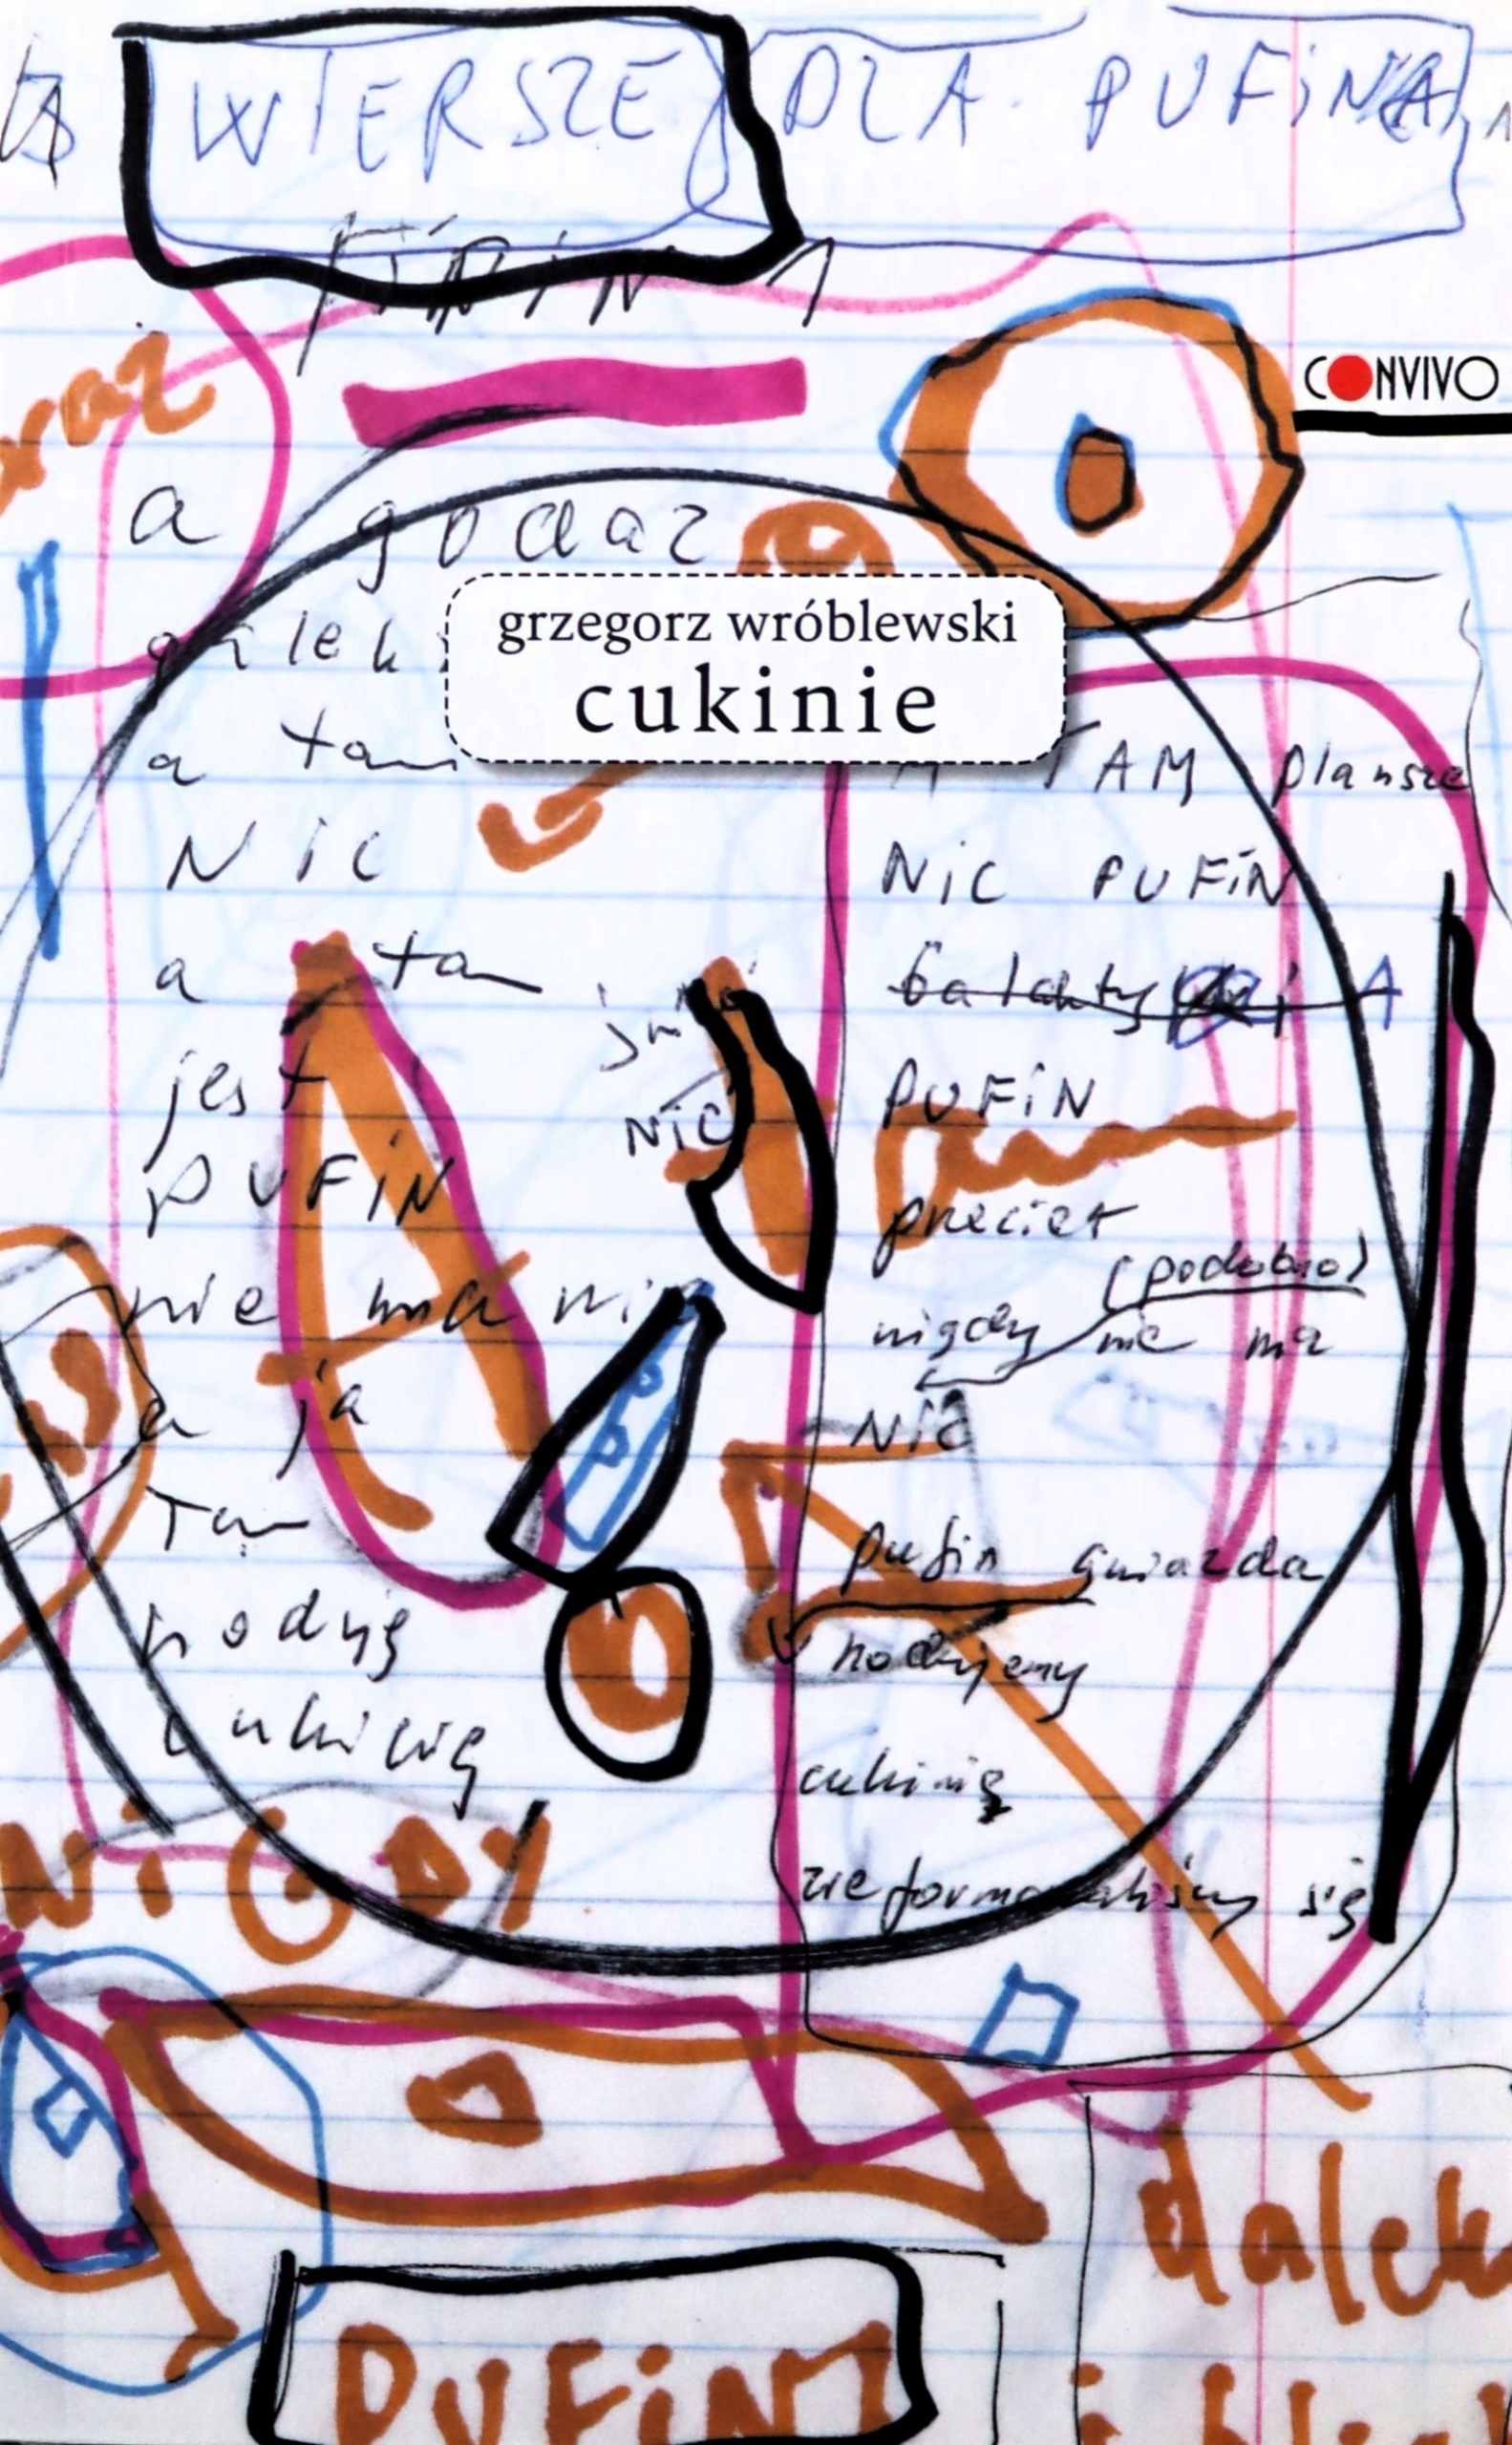 WIERSZE DLA PUFINA
CONVIVO
raz
a godaz
grzegorz wróblewski
cukinie
a tam
NiC
a tam
jest
PUFiN
nie ma nic
a ja
Tam
hodują
cukinię
NiC
A TAM plansze
NiC PUFiN
PUFiN
przecież
(podobno)
nigdy nie ma
NiC
pufin gwiazda
hodujemy
cukinię
zreformowaliśmy się
NiGDY
dalek
PUFiN